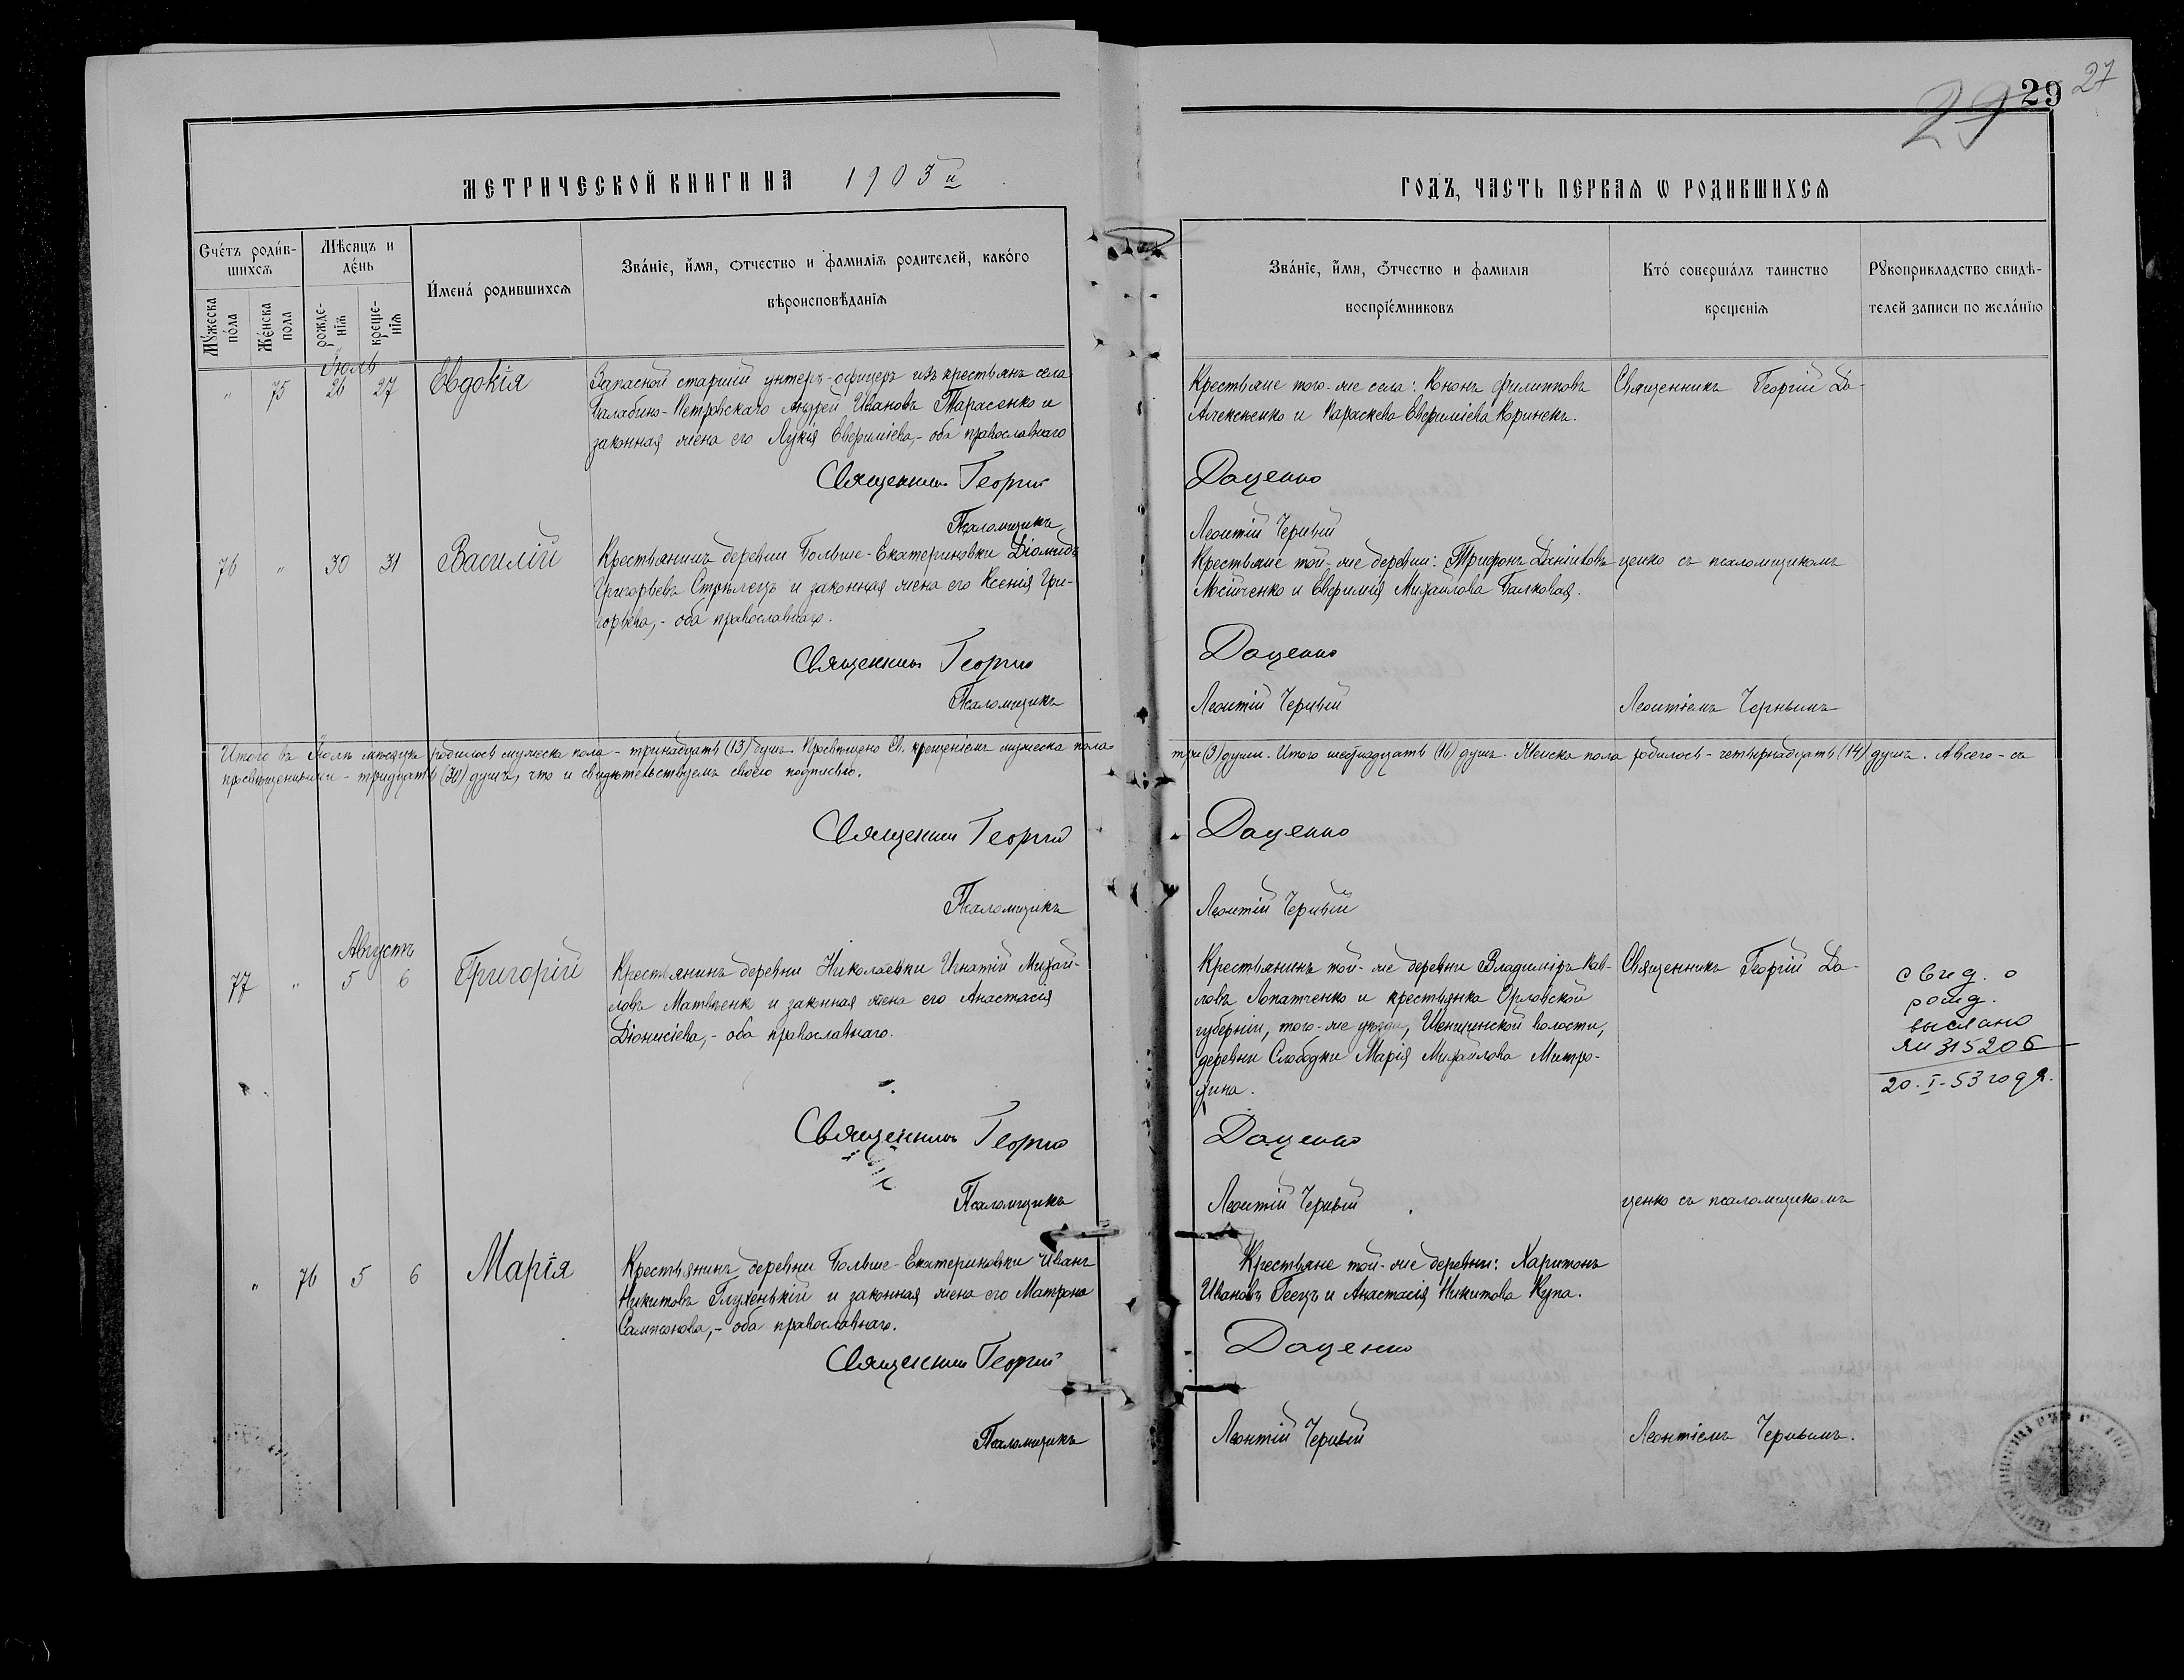 29
29
27
МЕТРИЧЕСКОЙ КНИГИ НА 1903й
ГОДЪ, ЧАСТЬ ПЕРВАЯ Ѡ РОДИВШИХСЯ
Счетъ родившихся
Мужеска пола
Женска пола
Мѣсяцъ и день
рожденія
крещенія
Имена родившихся
Званіе, имя, отчество и фамилія родителей, какого
вѣроисповѣданія
Званіе, имя, отчество и фамилія
воспріемниковъ
Кто совершалъ таинство
крещенія
Рукоприкладство свидѣ-
телей записи по желанію
Іюль
" 75 26 27 Евдокія
Запасной старшій унтеръ-офицеръ изъ крестьянъ села
Балабино-Петровскаго Андрей Ивановъ Тарасенко и
законная жена его Лукія Евфиміева,- оба православнаго
Крестьяне того-же села: Кононъ Филипповъ
Алексѣенко и Параскева Евфиміева Коринекъ.
Священникъ Георгій До-
Священникъ Георгій Доценко
Псаломщикъ Леонтій Черный
76 " 30 31 Василій
Крестьянинъ деревни Больше-Екатериновки Діомидъ
Григорьевъ Стрѣлецъ и законная жена его Ксенія Гри-
горьева,- оба православнаго.
Крестьяне той-же деревни: Трифонъ Даніиловъ
и Евфимія Михайлова Балковая.
ценко съ псаломщикомъ
Священникъ Георгій Доценко
Псаломщикъ Леонтій Черный
Леонтіемъ Чернымъ
Итого въ Іюлѣ мѣсяцѣ родилось мужеска пола - тринадцать (13) душъ. Просвѣщено Св. крещеніемъ мужеска пола- три (3) души. Итого шестнадцать (16) душъ. Женска пола родилось - четырнадцать (14) душъ. А всего - съ
просвѣщенными - тридцать (30) душъ, что и свидѣтельствуемъ своею подписью.
Священникъ Георгій Доценко
Псаломщикъ Леонтій Черный
Августъ
77 " 5 6 Григорій
Крестьянинъ деревни Николаевки Игнатій Михай-
ловъ Матвѣенк и законная жена его Анастасія
Діонисіева,- оба православнаго.
Крестьянинъ той-же деревни Владиміръ Пав-
ловъ Лопатченко и крестьянка Орловской
губерніи, того-же уѣзда, волости,
деревни Слободки Марія Михайлова Митро-
хина.
Священникъ Георгій До-
свид. о
рожд.
выслано
ЯИ 315206
20-I-53 года.
Священникъ Георгій Доценко
Псаломщикъ Леонтій Черный
ценко съ псаломщикомъ
" 76 5 6 Марія
Крестьянинъ деревни Больше-Екатериновки Иванъ
Никитовъ Глухенькій и законная жена его Матрона
Сампсонова,- оба православнаго.
Крестьяне той-же деревни: Харитонъ
Ивановъ и Анастасія Никитова Купа.
Священникъ Георгій Доценко
Псаломщикъ Леонтій Черный
Леонтіемъ Чернымъ.